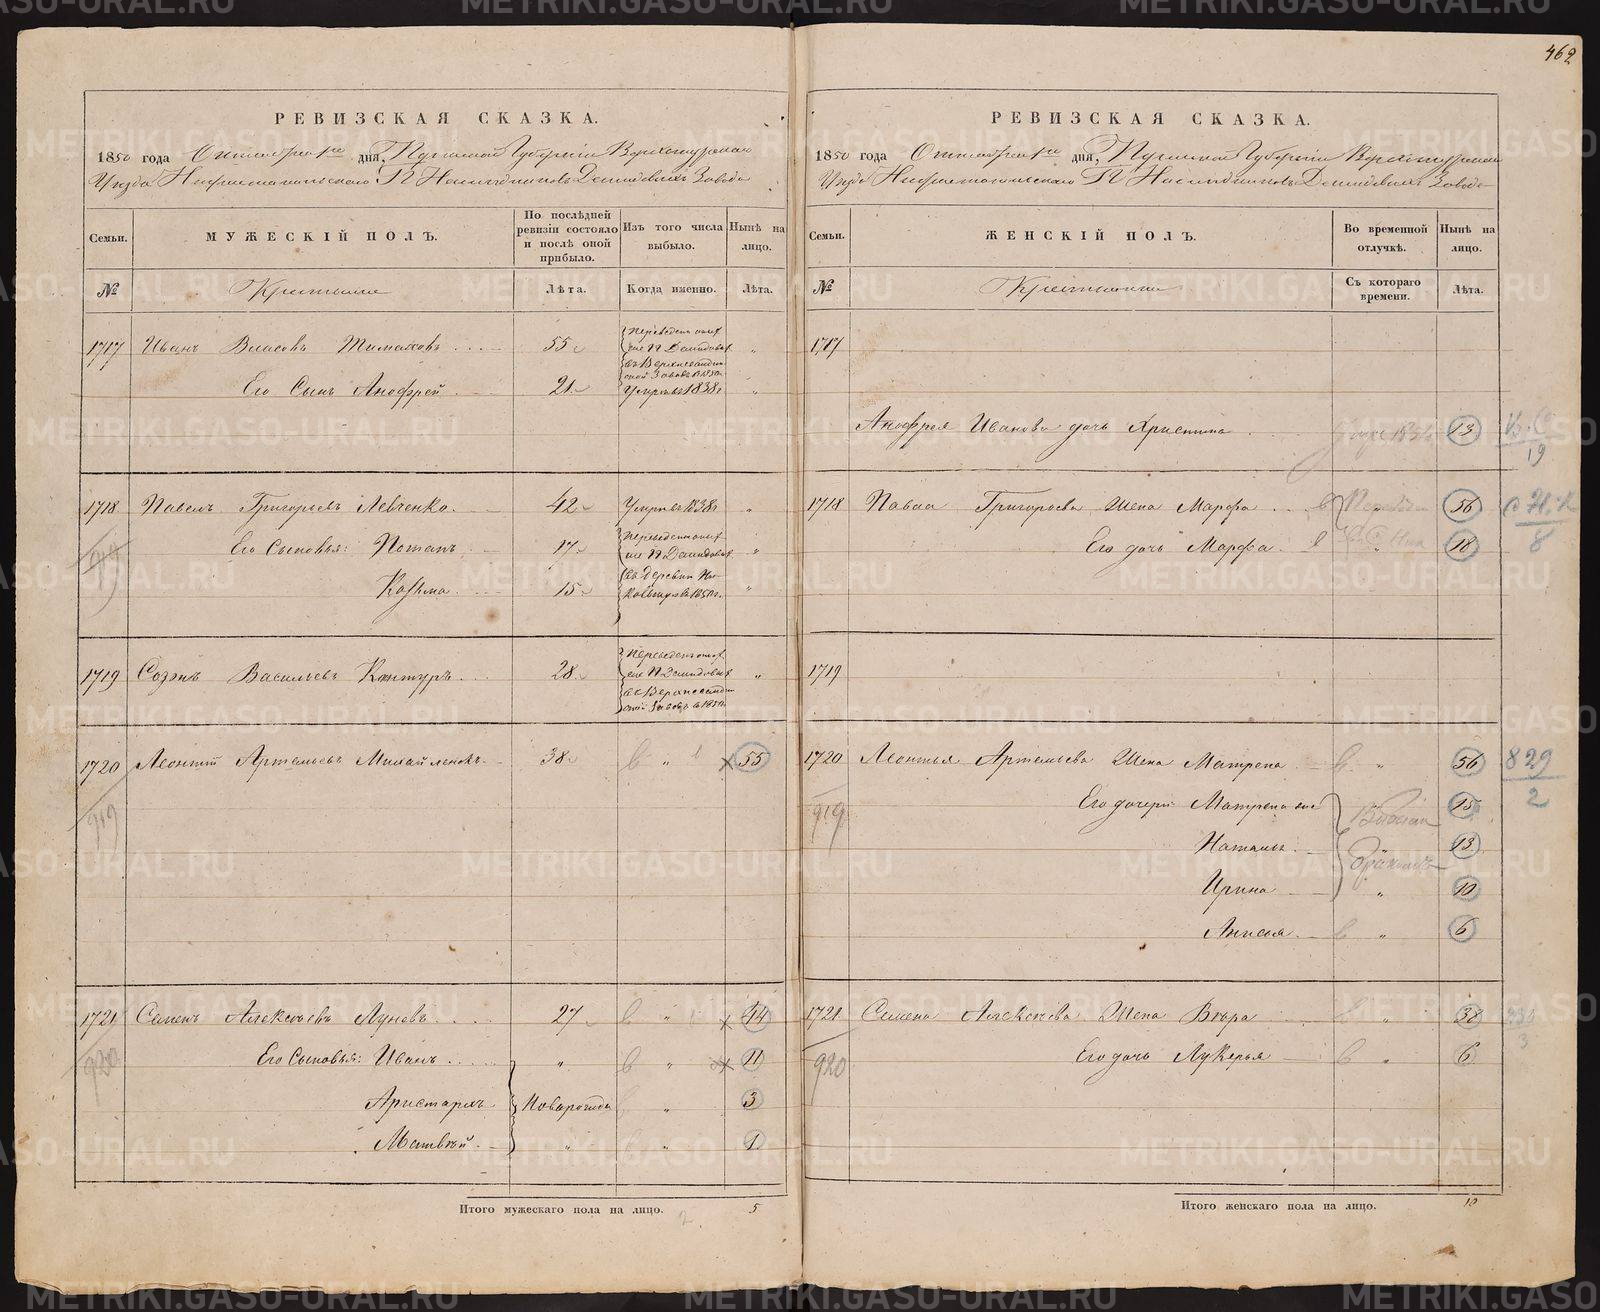 462
РЕВИЗСКАЯ СКАЗКА.
1850 года Октября дня, Пермской Губернии Верхотурскаго
Уезда Нижнетагильскаго Наследниковъ Демидовыхъ Завода
Семьи.
МУЖЕСКІЙ ПОЛЪ.
По послѣдней ревизіи состояло и послѣ оной прибыло.
Изъ того числа выбыло.
Нынѣ на лицо.
№
Крестьяне
Лѣта.
Когда именно.
Лѣта.
1717 Иванъ Власовъ 55 Переведенъ
въ 1850
Его Сынъ Анофрей 21 Умеръ в 1838г
1718 Павелъ Григорьевъ Левченко 42 Умеръ в 1838г
919
Его Сыновья: Потапъ 17 Переведены
Козма 15 въ деревни 1850г.
1719 Созонъ Васильевъ Кантуръ 28 Переведенъ
Заводъ в 1850г
1720 Леонтій Артемьевъ Михайленокъ 38 " 55
919
1721 Семенъ Алексѣевъ Луневъ 27 " 44
920
Его Сыновья: Иванъ " " 11
Аристархъ Новорожд " 3
Матвѣй " " 1
Итого мужескаго пола на лицо. 5
2
РЕВИЗСКАЯ СКАЗКА.
1850 года Октября дня, Пермской Губернии Верхотурскаго
Уезда Нижнетагильскаго Наследниковъ Демидовыхъ Завода
Семьи.
ЖЕНСКІЙ ПОЛЪ.
Во временной отлучкѣ.
Нынѣ на лицо.
№
Крестьянки
Съ котораго времени.
Лѣта.
1717
Анофрея Иванова дочь Христина 13
19
1718 Павла Григорьева Жена Марфа 56
8
Его дочь Марфа " 18
1719
1720 Леонтья Артемьева Жена Матрена " 56 829
2
919
Его дочери: Матрена 15
Наталья " 13
Ирина " 10
Анисья " 6
1721 Семена Алексѣева Жена Вѣра " 38
3
920
Его дочь Лукерья " 6
Итого женскаго пола на лицо. 10
METRIKI.GASO-URAL.RU